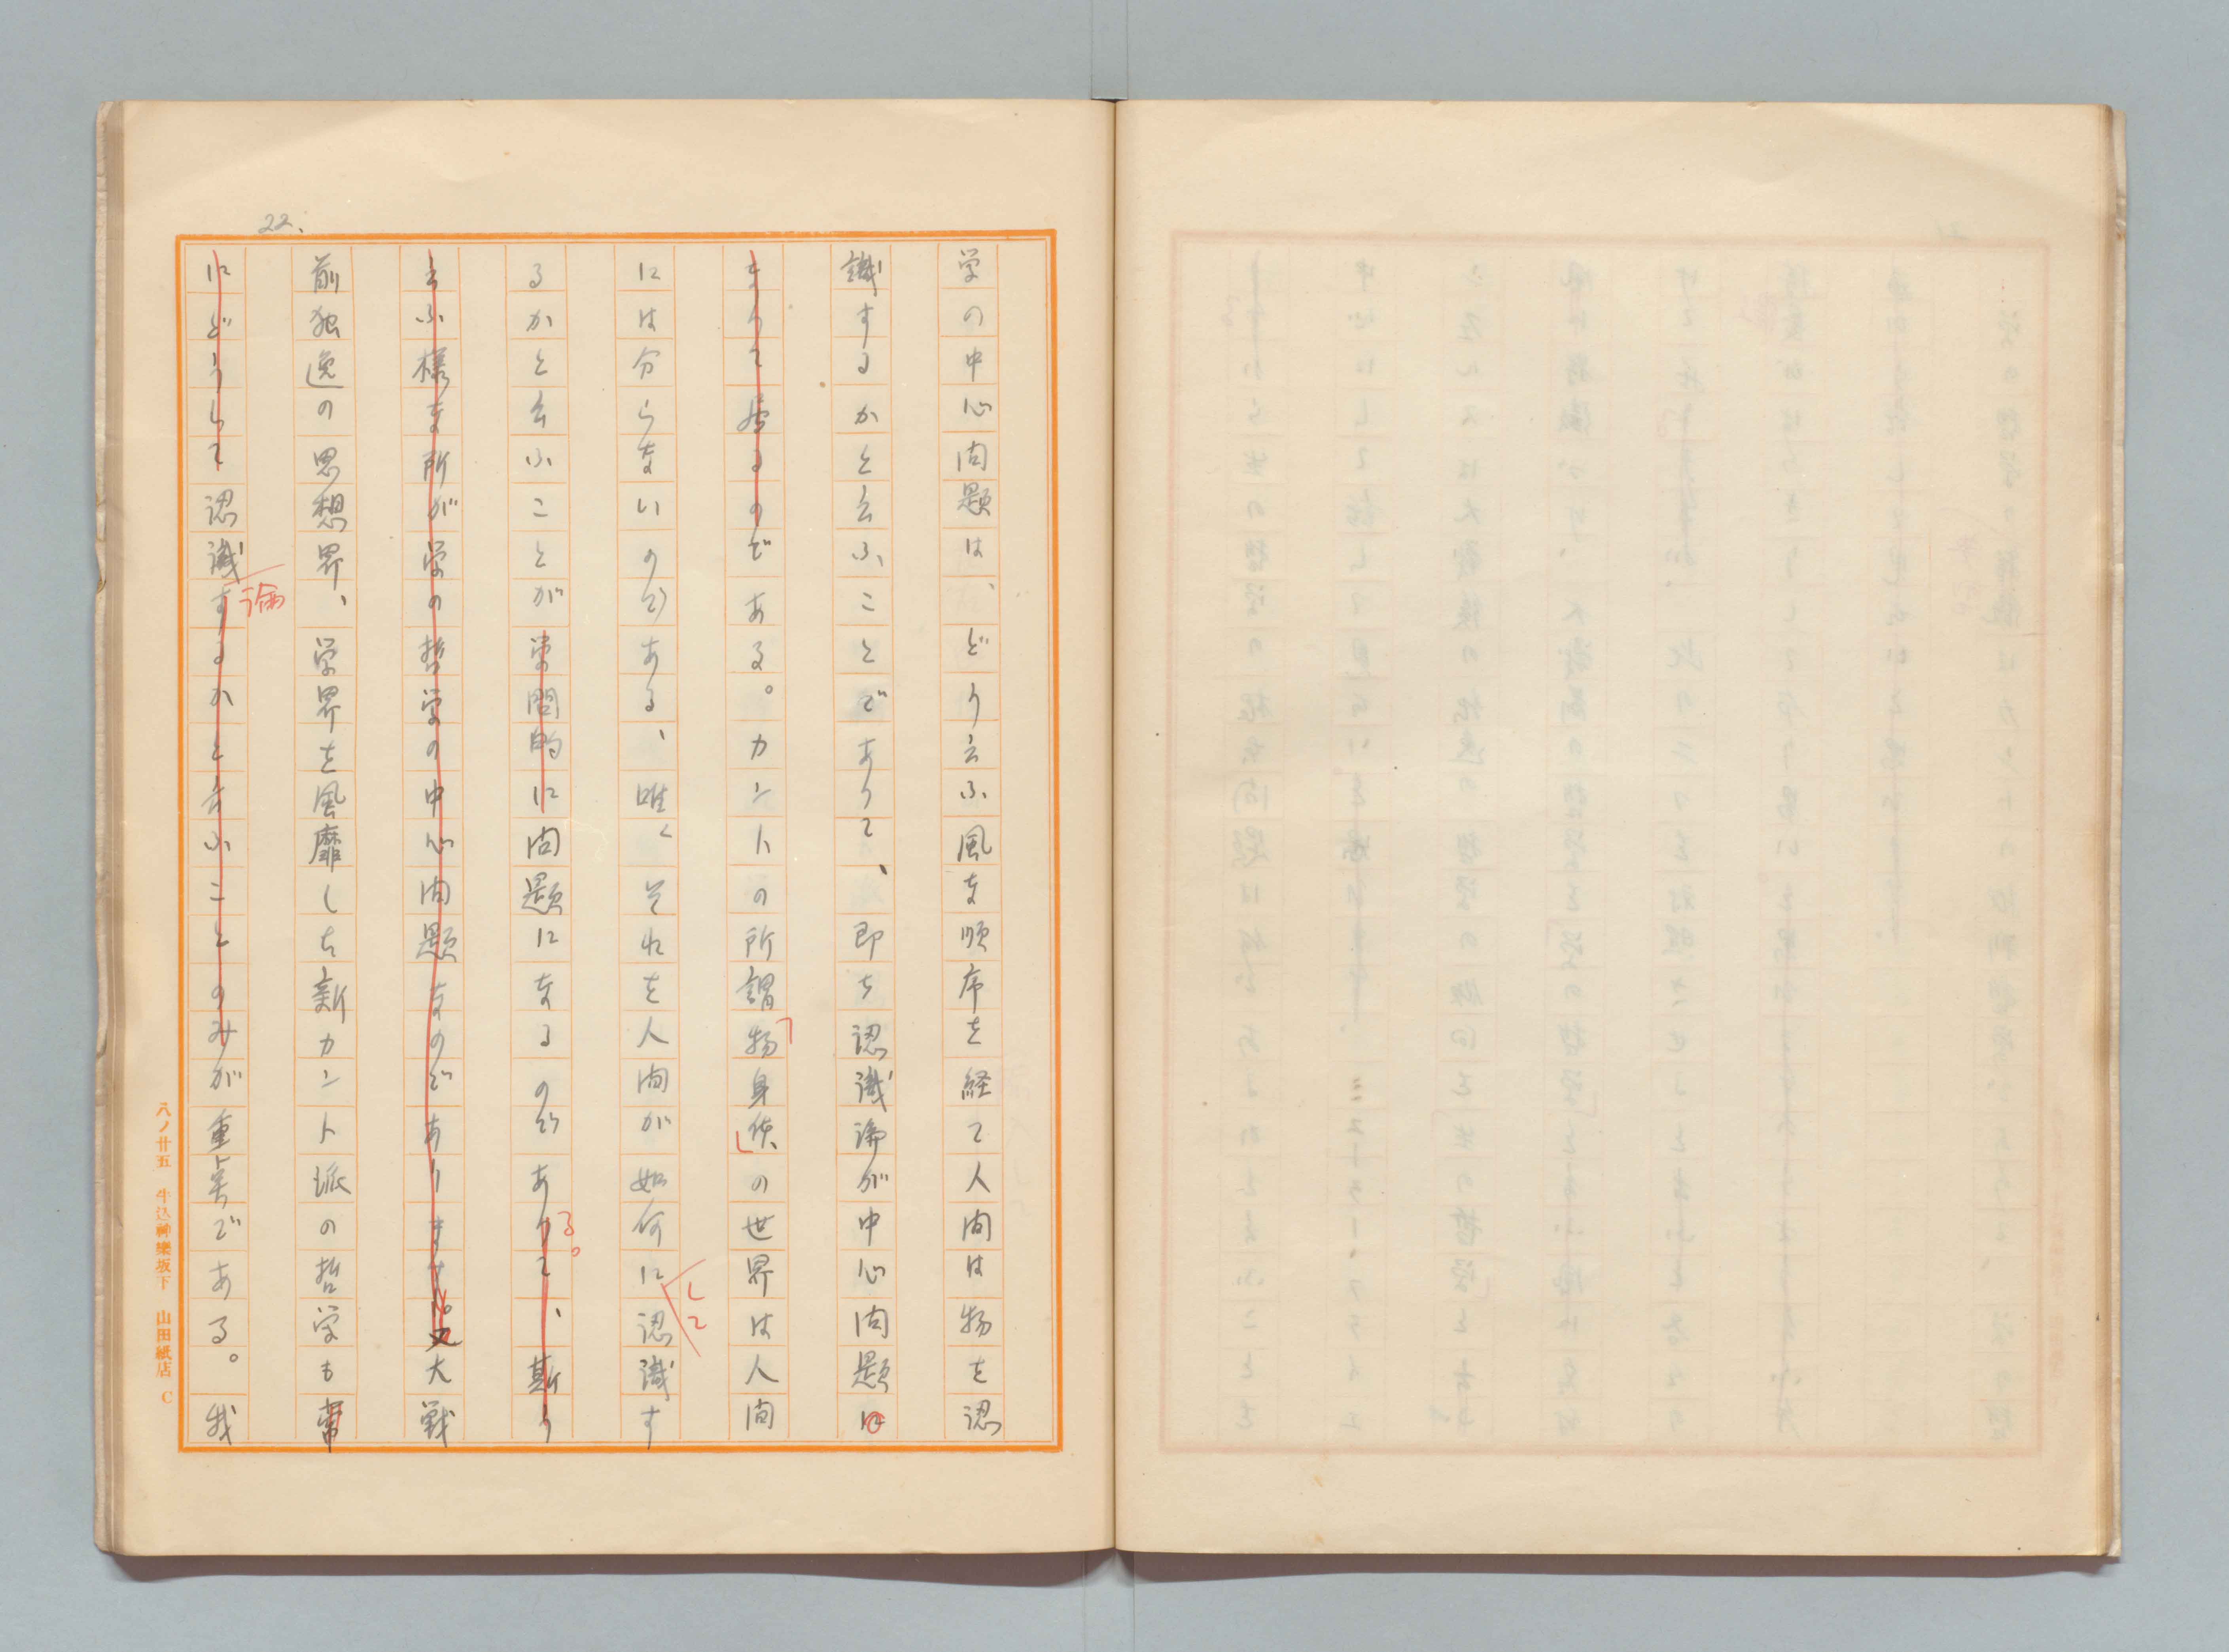 22.
学の中心问題は、どう云ふ風な順序を経て人间は物を認
識するかと云ふことであつて、即ち認識論が中心问題に
なつて居るのである。カントの所謂「物身体」の世界は人间
には分らないのである、唯々それを人间が如何にして認識す
るかと云ふことが学問的に问題になるのであつて、斯うる。
云ふ様な所が学の哲学の中心问題なのであり大戦
前独逸の思想界、学界を風靡した新カント派の哲学も
にどうして認識論するかと云ふことのみが重点である。我
八ノ廿五 牛込神樂坂下 山田紙店 C